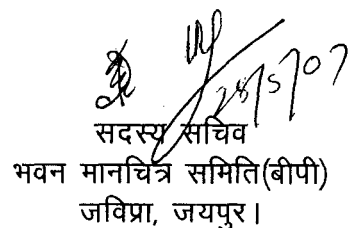 28/5/07
सदस्य सचिव
भवन मानचित्र समिति(बीपी)
जविप्रा, जयपुर।